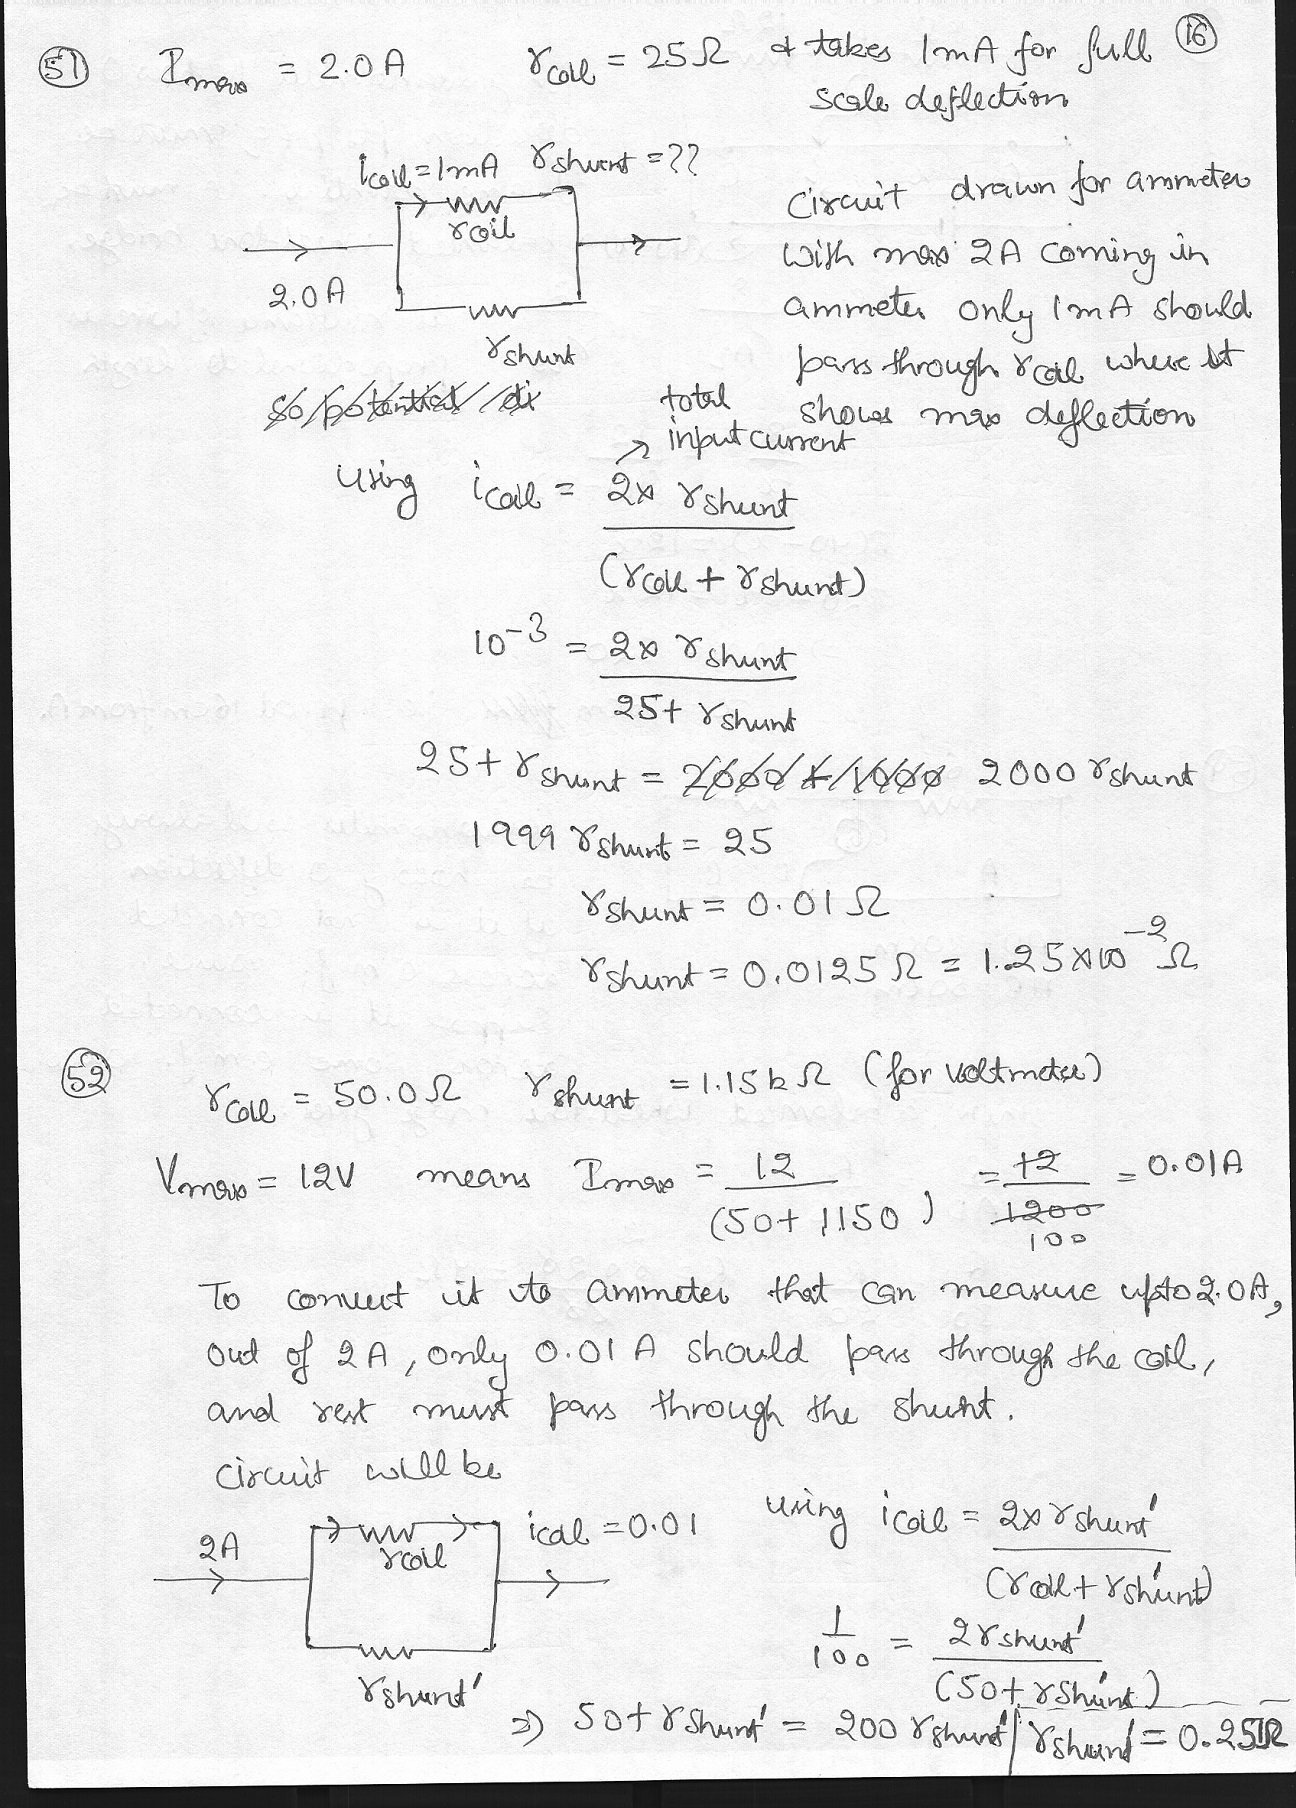 51 Imax = 2.0A rcoil = 25Ω & takes 1mA for full 16
scale deflection
icoil = 1mA rshunt = ??
rcoil
2.0A
rshunt
Circuit drawn for ammeter
with max 2A coming in
ammeter only 1mA should
pass through rcoil where it
shows max deflection
so potential di
total
input current
using icoil = 2x rshunt
(rcoil + rshunt)
10-3 = 2x rshunt
25+ rshunt
25+ rshunt = 2000 + 1000 2000 rshunt
1999 rshunt = 25
rshunt = 0.01Ω
rshunt = 0.0125Ω = 1.25x10-2Ω
52 rcoil = 50.0Ω rshunt = 1.15kΩ (for voltmeter)
Vmax = 12V means Imax = 12 = 12 = 0.01A
(50+1150) 1200
100
To convert it to ammeter that can measure upto 2.0A,
out of 2A, only 0.01A should pass through the coil,
and rest must pass through the shunt.
circuit will be
2A
rcoil
icoil = 0.01
rshunt'
using icoil = 2x rshunt'
(rcoil + rshunt')
1 = 2rshunt'
100 (50+ rshunt')
⇒ 50+ rshunt' = 200 rshunt' | rshunt' = 0.25Ω